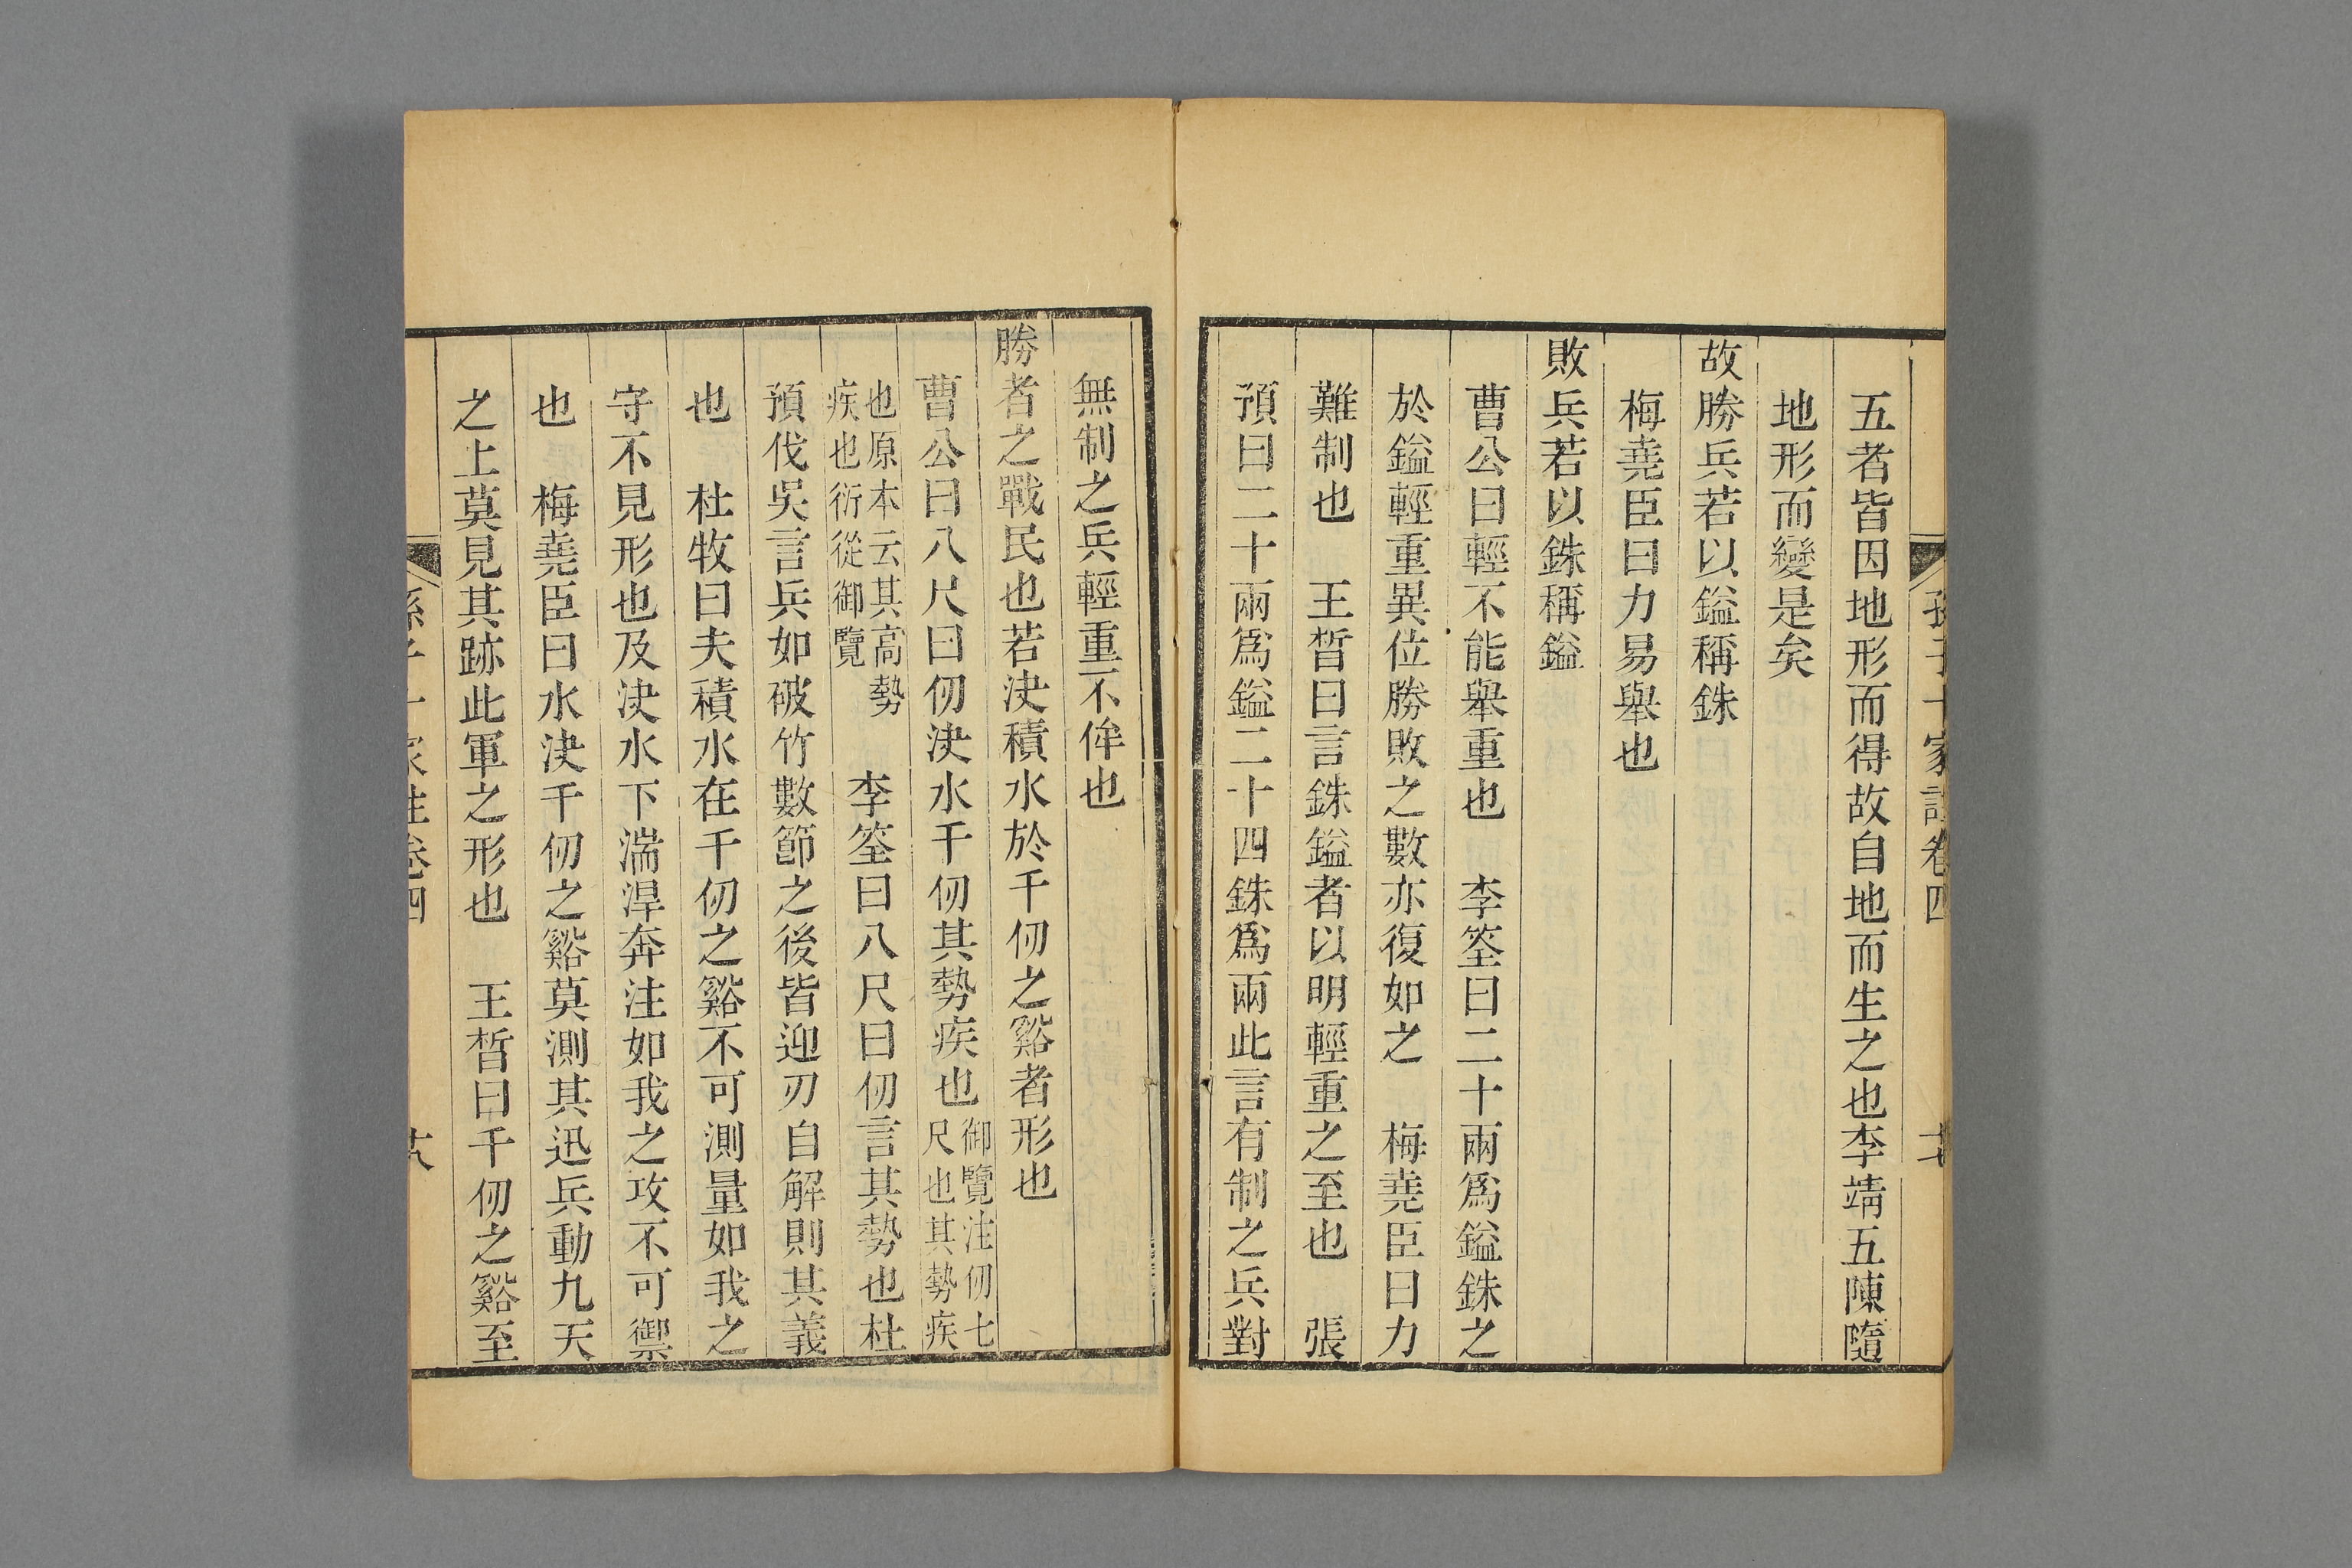 孫子十家註卷四
五者皆因地形而得故自地而生之也李靖五陳隨
地形而變是矣
故勝兵若以鎰稱銖
梅堯臣曰力易舉也
敗兵若以銖稱鎰
曹公曰輕不能舉重也　李筌曰二十兩爲鎰銖之
於鎰輕重異位勝敗之數亦復如之　梅堯臣曰力
難制也　王晳曰言銖鎰者以明輕重之至也　張
預曰二十兩爲鎰二十四銖爲兩此言有制之兵對
無制之兵輕重不侔也
勝者之戰民也若決積水於千仞之谿者形也
曹公曰八尺曰仞決水千仞其勢疾也御覽注仞七尺也其勢疾
也原本云其高勢疾也衍從御覽　李筌曰八尺曰仞言其勢也杜
預伐吳言兵如破竹數節之後皆迎刃自解則其義
也　杜牧曰夫積水在千仞之谿不可測量如我之
守不見形也及決水下湍浬奔注如我之攻不可禦
也　梅堯臣曰水決千仞之谿莫測其迅兵動九天
之上莫見其跡此軍之形也　王晳曰千仞之谿至
卷四